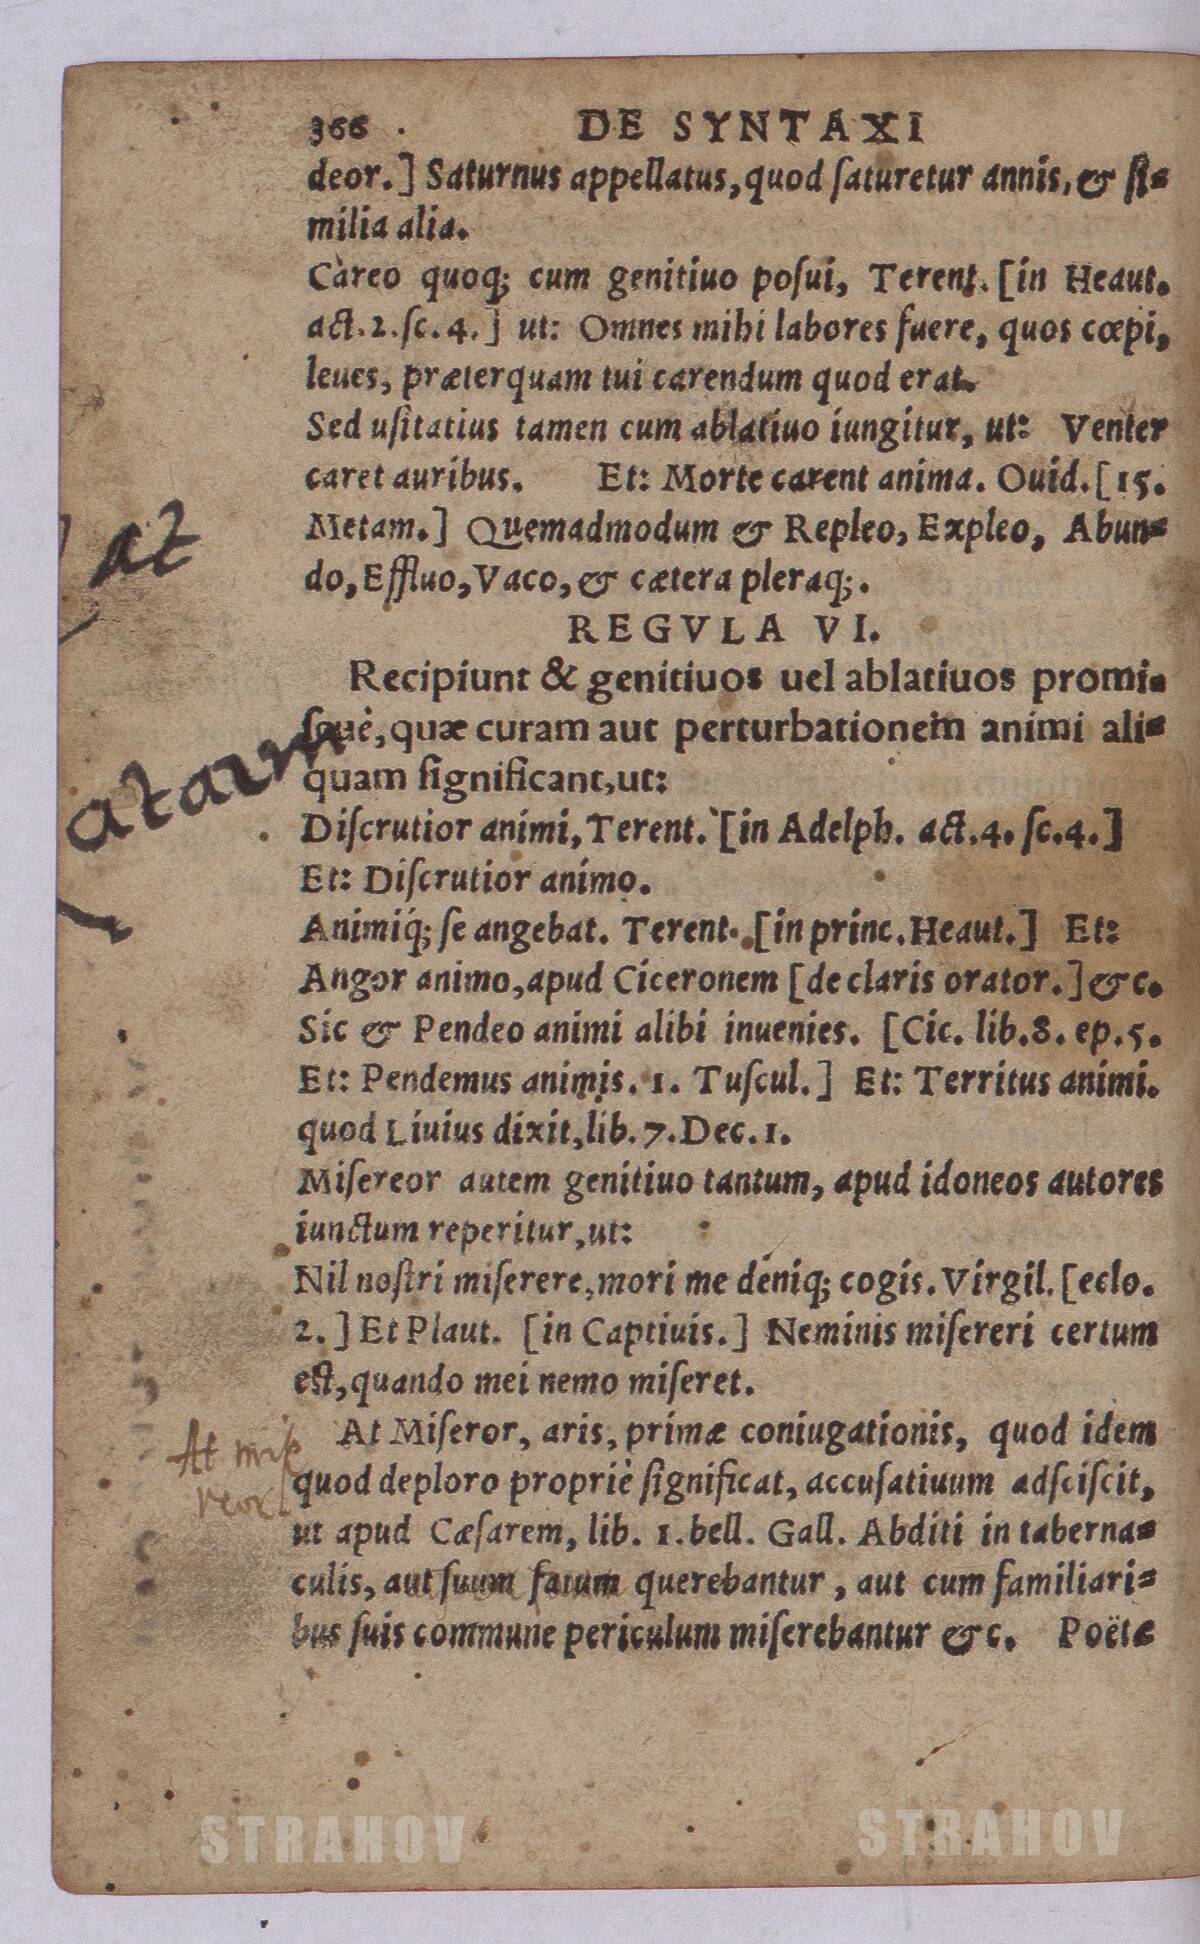 366 DE SYNTAXI
deor.] Saturnus appellatus, quod ſaturetur annis, & ſi-
milia alia.
Careo quoq; cum genitiuo poſui, Terent. [in Heaut.
act. 2. ſc. 4.] ut: Omnes mihi labores fuere, quos cœpi,
leues, præterquam tui carendum quod erat.
Sed uſitatius tamen cum ablatiuo iungitur, ut: Venter
caret auribus. Et: Morte carent anima. Ouid. [15.
Metam.] Quemadmodum & Repleo, Expleo, Abun-
do, Effluo, Vaco, & cætera pleraq;.
at
REGVLA VI.
Recipiunt & genitiuos uel ablatiuos promi-
ſcuè, quæ curam aut perturbationem animi ali-
quam significant, ut:
Diſcrutior animi, Terent. [in Adelph. act. 4. ſc. 4.]
Et: Diſcrutior animo.
Animiq́; ſe angebat. Terent. [in princ. Heaut.] Et:
Angor animo, apud Ciceronem [de claris orator.] &c.
Sic & Pendeo animi alibi inuenies. [Cic. lib. 8. ep. 5.
Et: Pendemus animis. 1. Tuſcul.] Et: Territus animi.
quod Liuius dixit, lib. 7. Dec. 1.
Miſereor autem genitiuo tantum, apud idoneos autores
iunctum reperitur, ut:
Nil noſtri miſerere, mori me deniq; cogis. Virgil. [eclo.
2.] Et Plaut. [in Captiuis.] Neminis miſereri certum
eſt, quando mei nemo miſeret.
At Miſeror, aris, primæ coniugationis, quod idem
quod deploro propriè ſignificat, accuſatiuum adſciſcit,
ut apud Cæſarem, lib. 1. bell. Gall. Abditi in taberna-
culis, aut ſuum fatum querebantur, aut cum familiari-
bus ſuis commune periculum miſerebantur &c. Poëtæ
STRAHOV STRAHOV